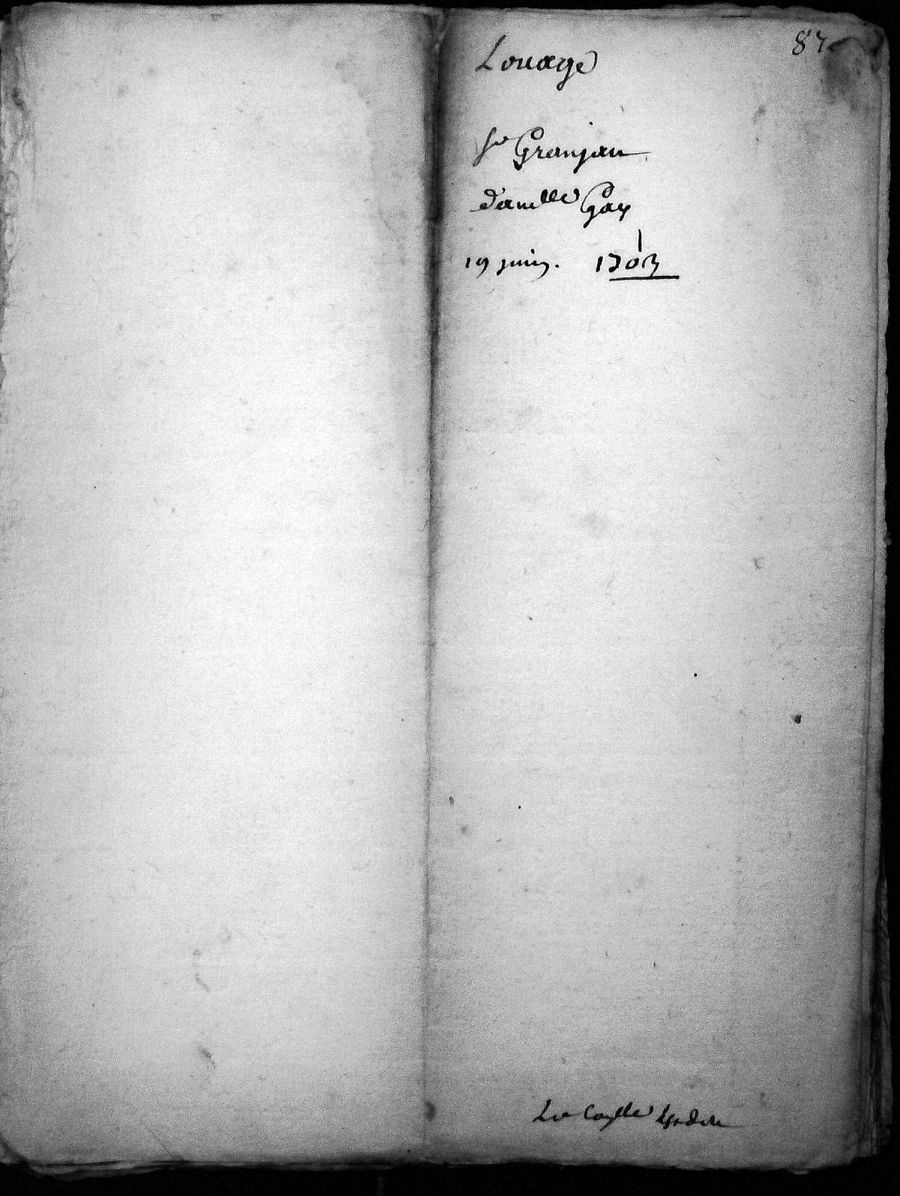 87
Louage
Sr Granjan
Damlle Gay
19 juin. 1703